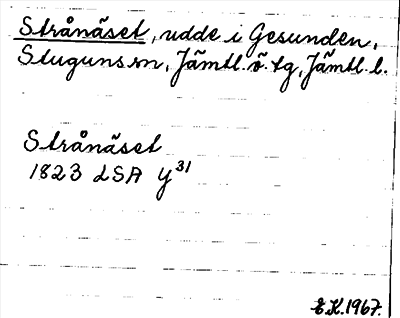 Strånäset, udde i Gesunden,
Stuguns sn, Jämtl. ö. tg, Jämtl. l.
Strånäset
1823 LSA Y31
E.K. 1967.